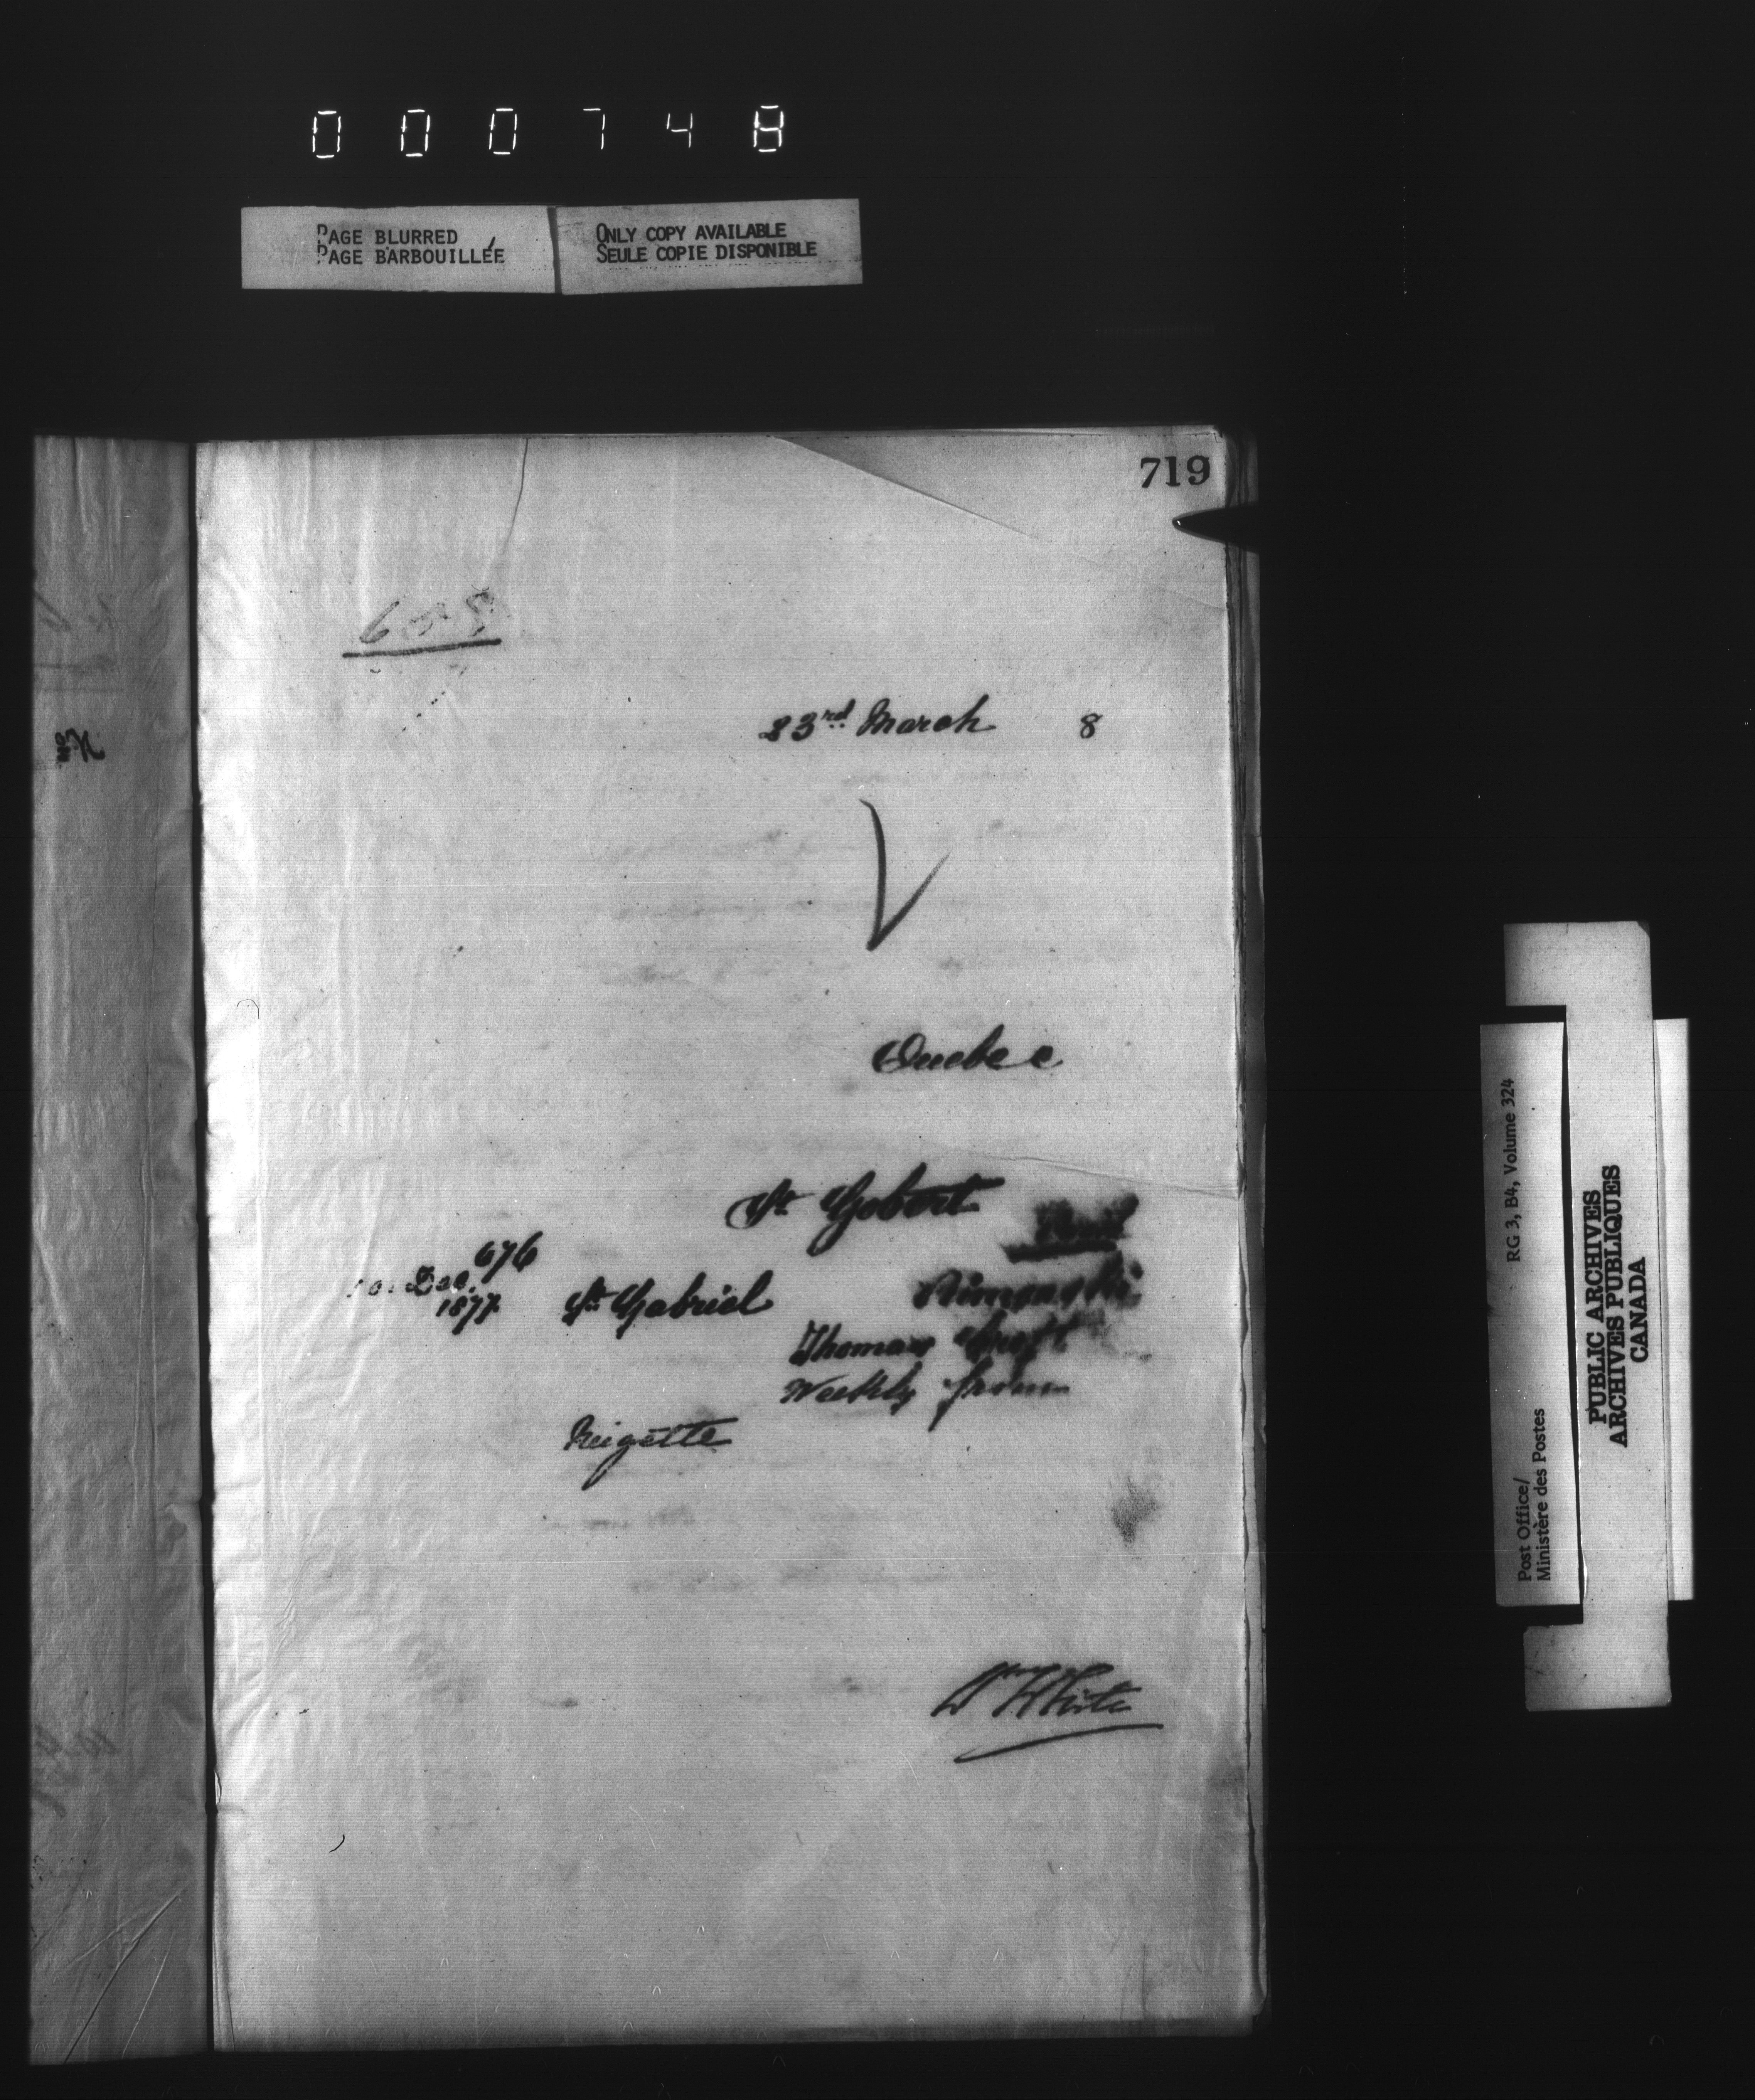 000748
PAGE BLURRED
PAGE BARBOUILLÉE
ONLY COPY AVAILABLE
SEULE COPIE DISPONIBLE
719
23rd March 8
Quebec
St Gobert
676
Dec.
1877
St. Gabriel
Rimouski
Thomas
Weekly from
Neigette
Wm White
RG 3, B4, Volume 324
Post Office/
Ministère des Postes
PUBLIC ARCHIVES
ARCHIVES PUBLIQUES
CANADA